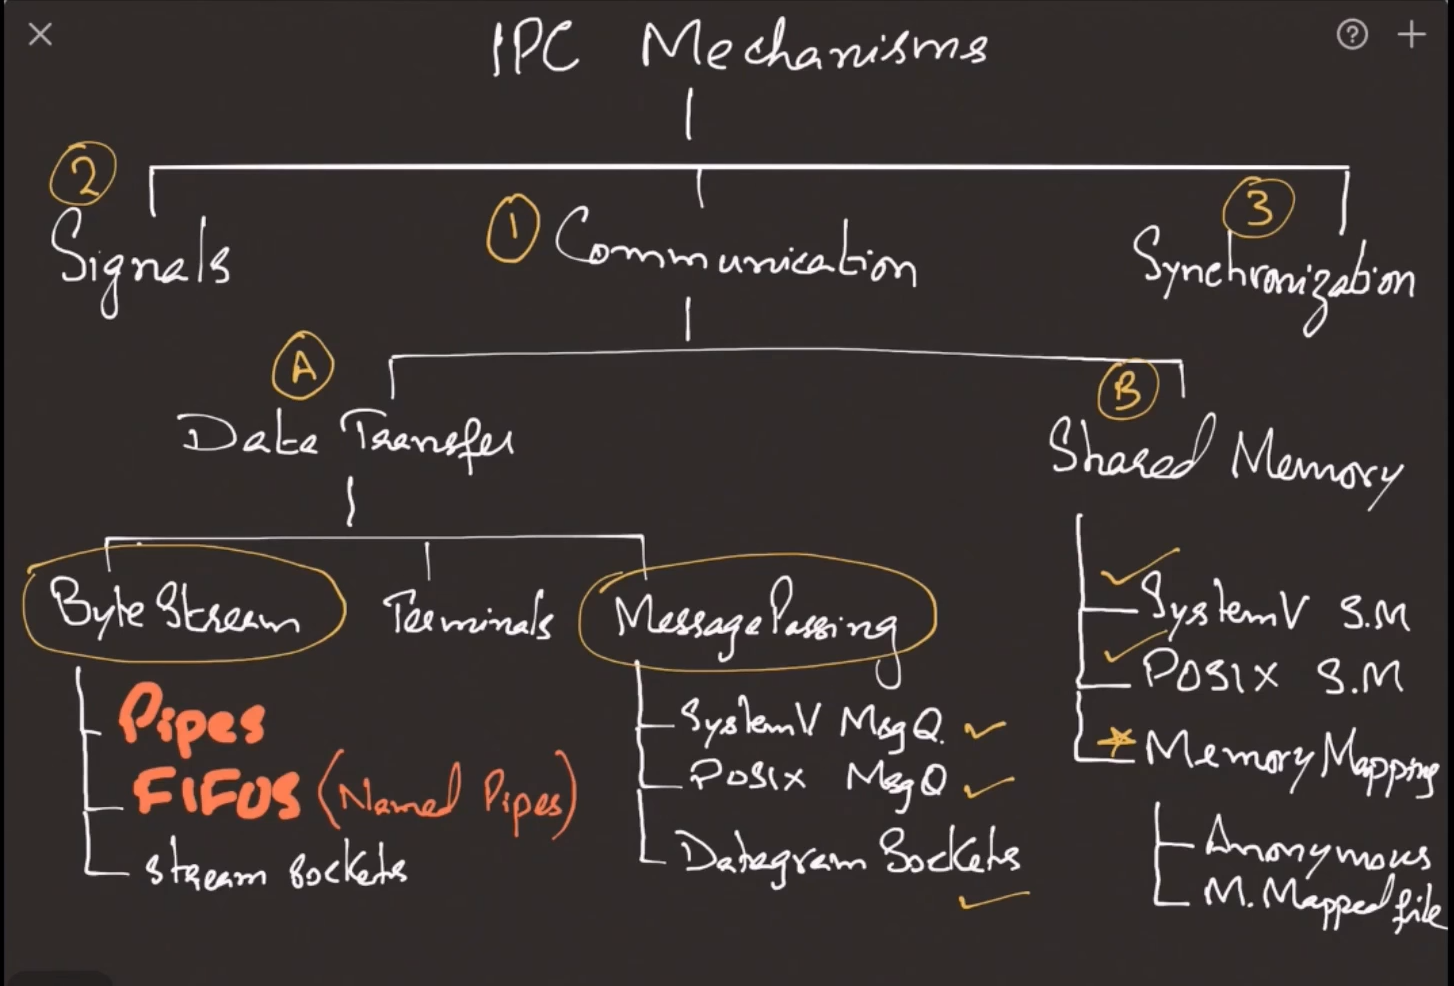 IPC Mechanisms
2
Signals
1 Communication
3
Synchronization
A
Data Transfer
B
Shared Memory
Byte Stream
Terminals
Message Passing
Pipes
FIFOS (Named Pipes)
Stream Sockets
SystemV MsgQ
POSIX MsgQ
Datagram Sockets
SystemV S.M
POSIX S.M
Memory Mapping
Anonymous
M. Mapped file